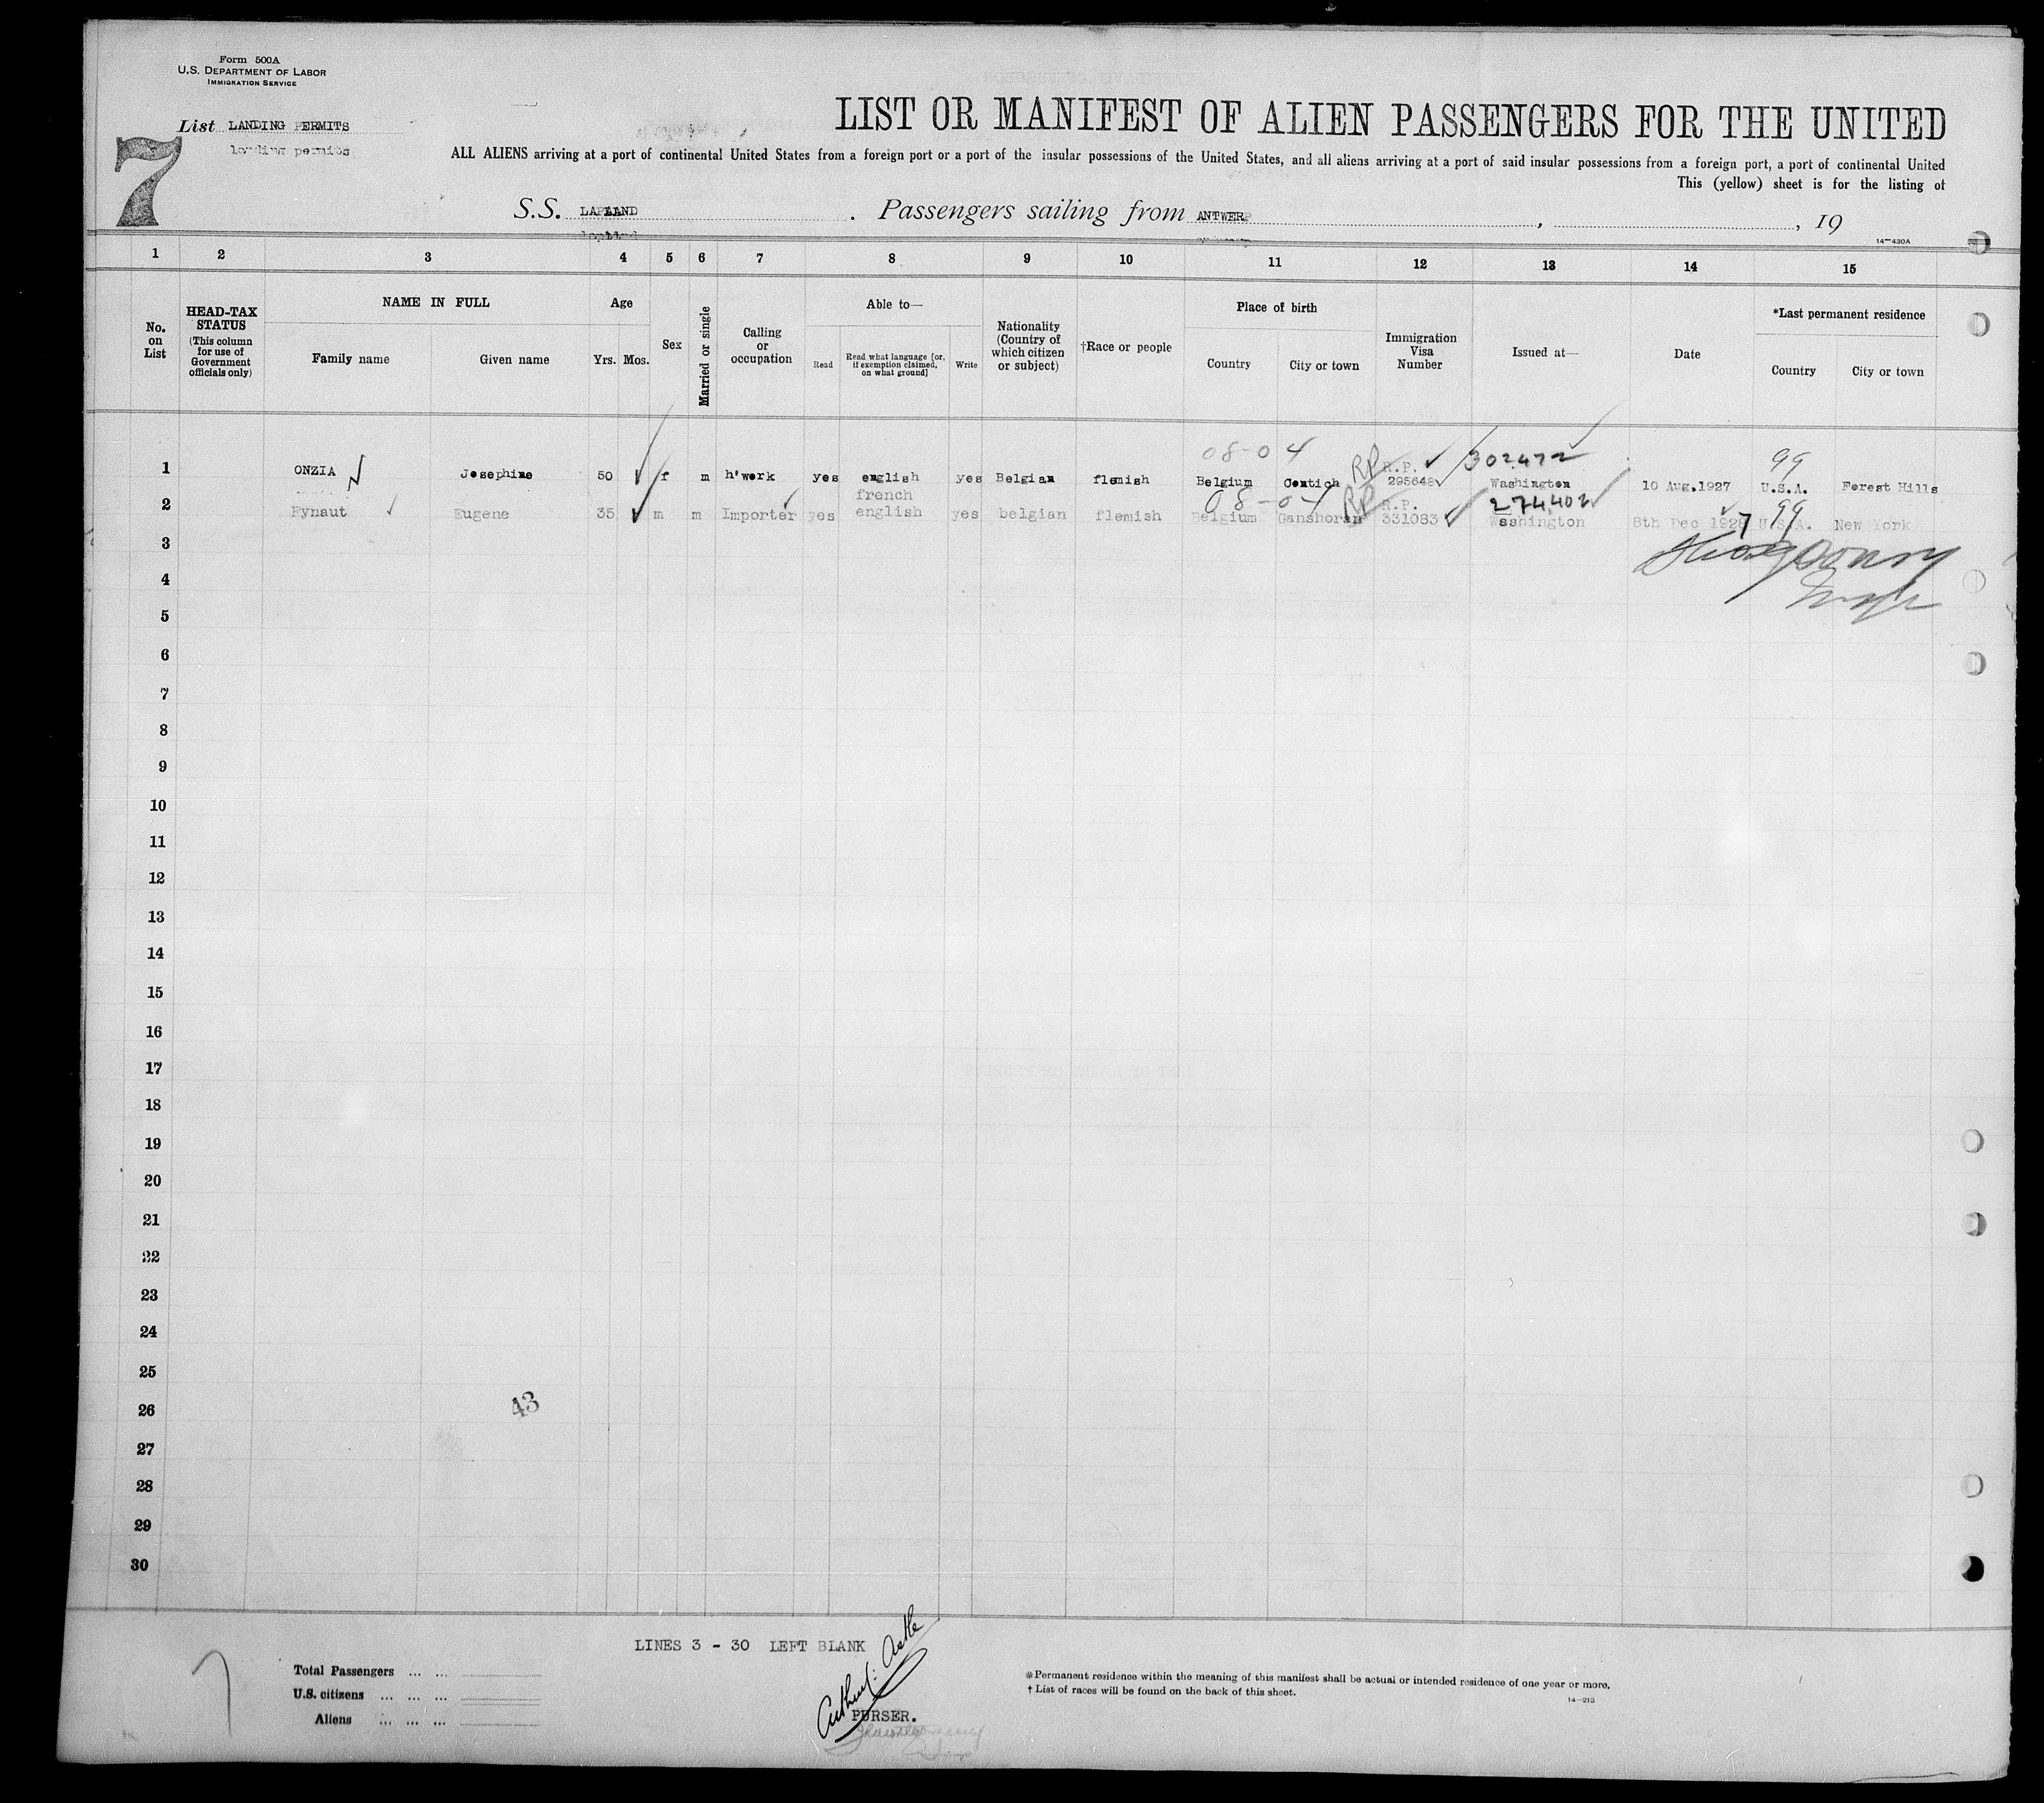 Form 500A
U.S. DEPARTMENT OF LABOR
IMMIGRATION SERVICE
LIST OR MANIFEST OF ALIEN PASSENGERS FOR THE UNITED
List LANDING PERMITS
landing permits
7
ALL ALIENS arriving at a port of continental United States from a foreign port or a port of the insular possessions of the United States, and all aliens arriving at a port of said insular possessions from a foreign port, a port of continental United
This (yellow) sheet is for the listing of
S.S. LAPLAND . Passengers sailing from ANTWERP , , 19
14—430A
1 2 3 4 5 6 7 8 9 10 11 12 13 14 15
No. on List
HEAD-TAX STATUS (This column for use of Government officials only)
NAME IN FULL
Family name Given name
Age
Yrs. Mos.
Sex
Married or single
Calling or occupation
Able to—
Read Read what language [or, if exemption claimed, on what ground] Write
Nationality (Country of which citizen or subject)
†Race or people
Place of birth
Country City or town
Immigration Visa Number
Issued at—
Date
*Last permanent residence
Country City or town
08-04 RP R.P. 302472 99
1 ONZIA Josephine 50 f m h'work yes english yes Belgian flemish Belgium Contich 295648 Washington 10 Aug.1927 U.S.A. Forest Hills
french 08-04 RP R.P. 274,402 99
2 Fynaut Eugene 35 m m Importer yes english yes belgian flemish Belgium Ganshoran 331083 Washington 8th Dec 1928 7 U.S.A. New York
3
4
5
6
7
8
9
10
11
12
13
14
15
16
17
18
19
20
21
22
23
24
25
26
43
27
28
29
30
LINES 3 - 30 LEFT BLANK
Total Passengers ... ...
U.S. citizens ... ... ...
Aliens ... ... ...
PURSER.
*Permanent residence within the meaning of this manifest shall be actual or intended residence of one year or more.
† List of races will be found on the back of this sheet.
14—213